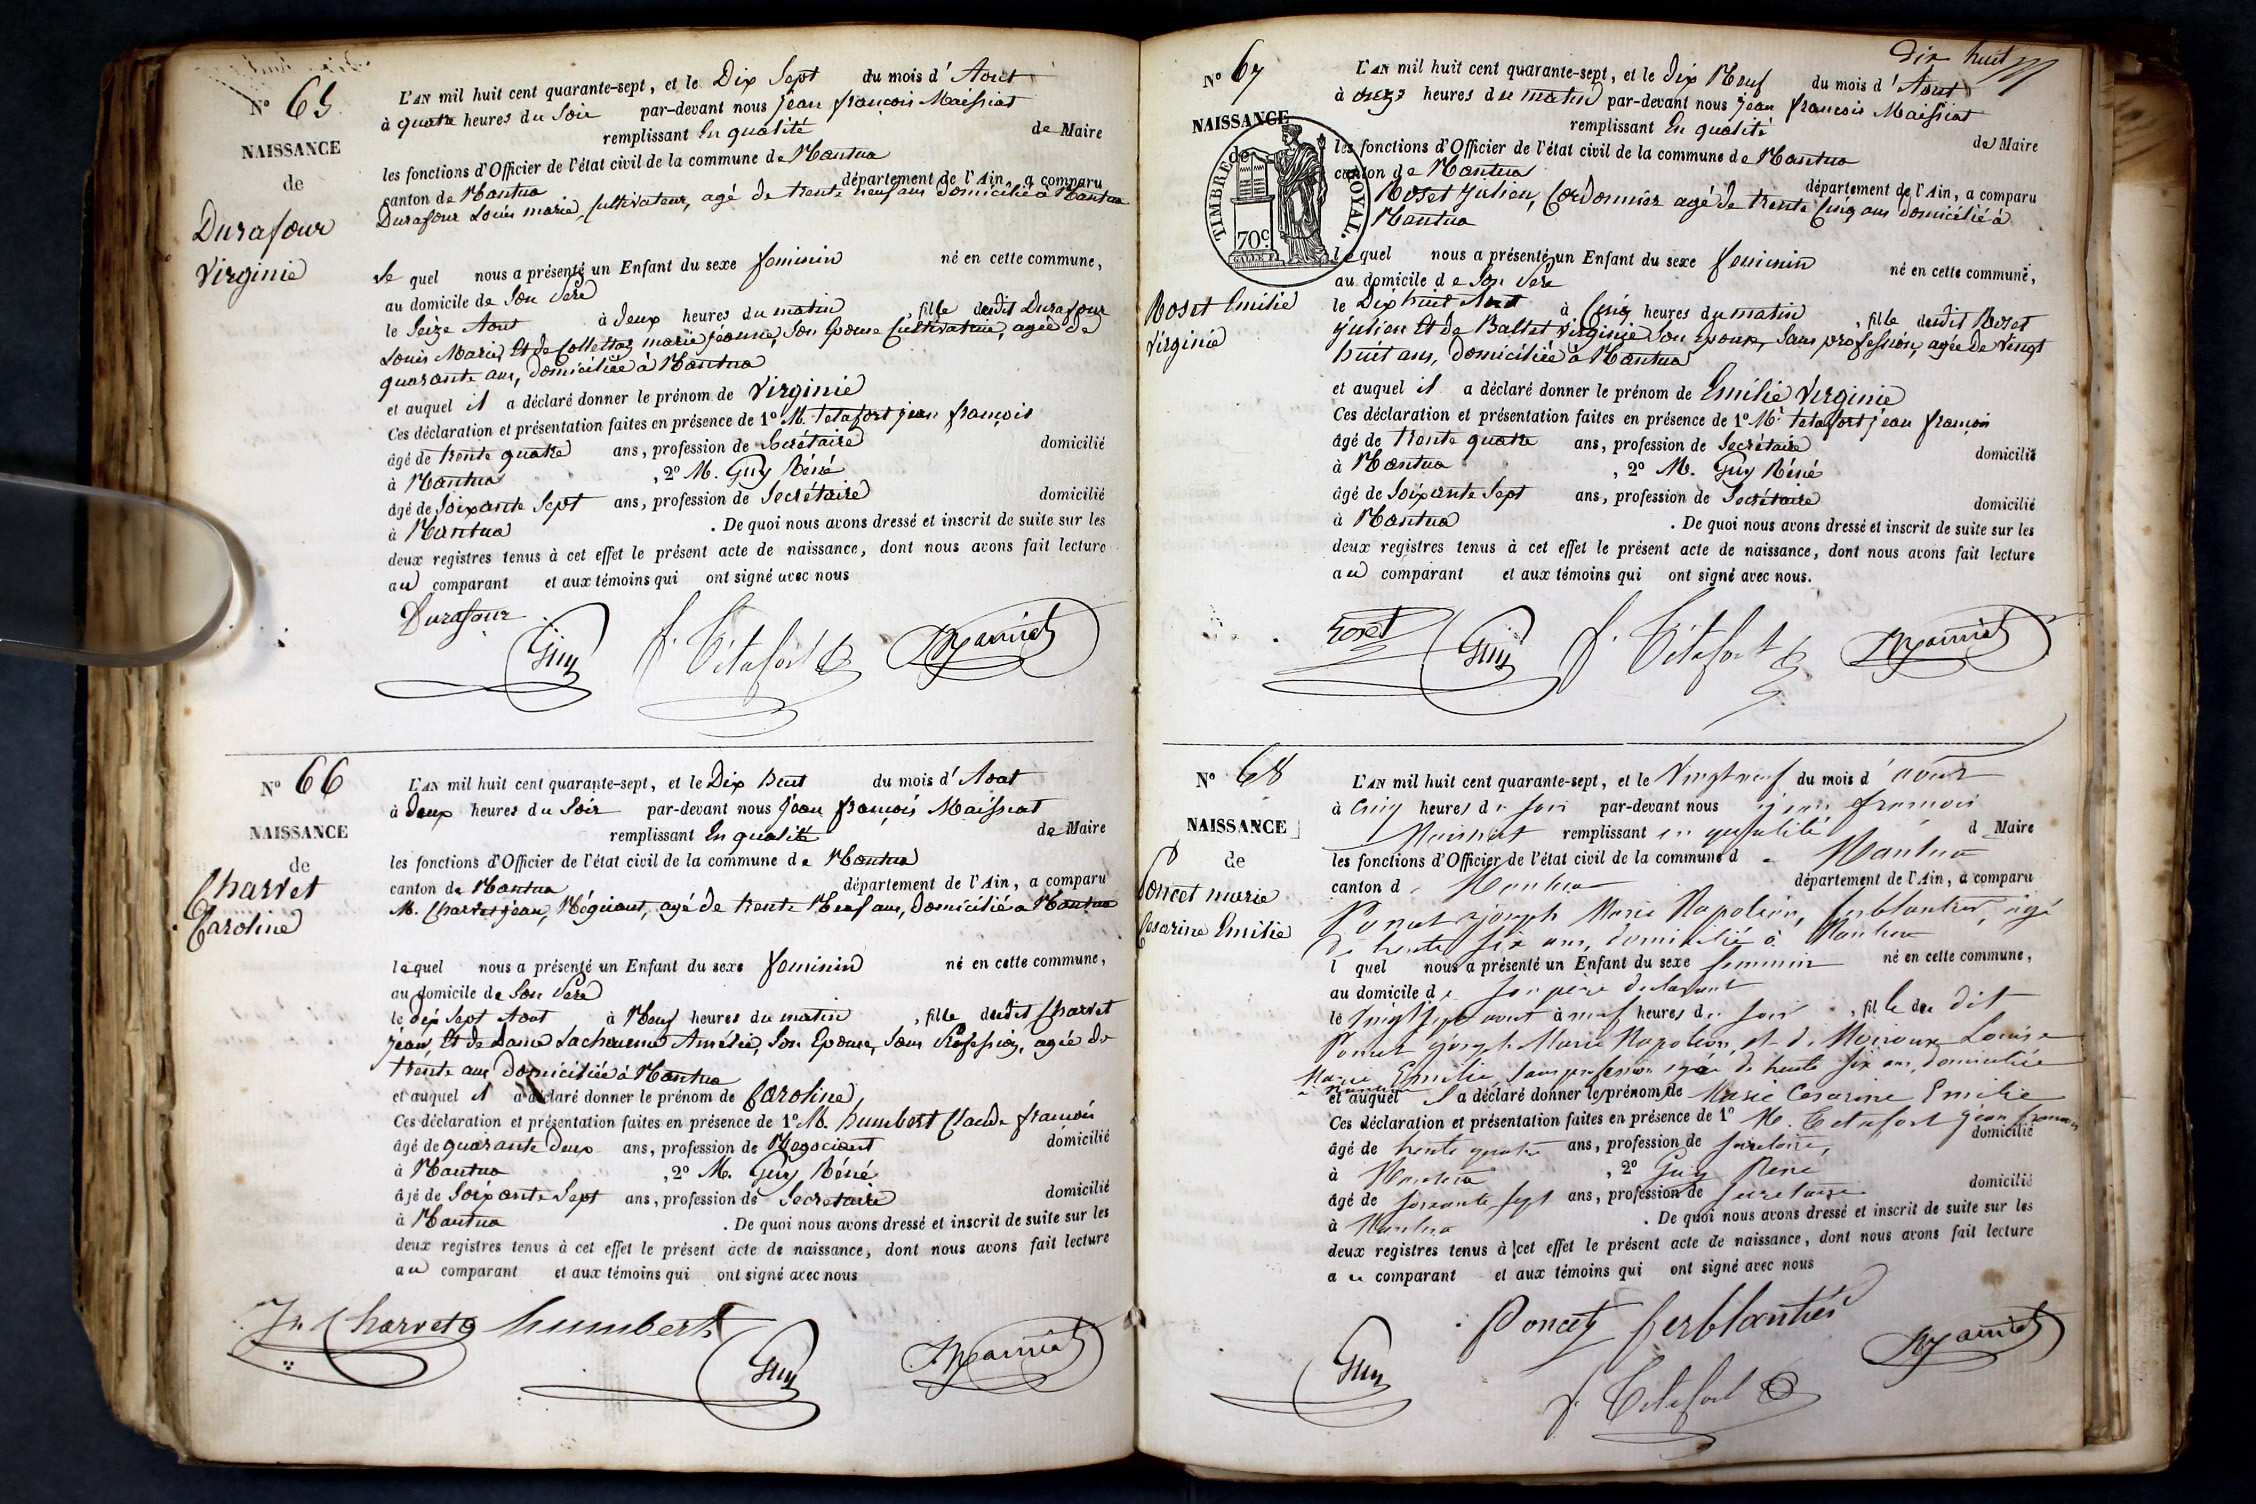 N° 65
NAISSANCE
de
Durafour
Virginie
L'AN mil huit cent quarante-sept, et le Dix Sept du mois d'Aout
à quatre heures du Soir par-devant nous jean françois Maissiat
remplissant En qualité de Maire
les fonctions d'Officier de l'état civil de la commune de Nantua
canton de Nantua département de l'Ain, a comparu
Durafour Louis marie, Cultivateur, agé de trente neuf ans domicilié à Nantua
Le quel nous a présenté un Enfant du sexe feminin né en cette commune,
au domicile de Son Pere
le Seize Aout à deux heures du matin, fille dudit Durafour
Louis Marie, Et de Collettaz marie jéanne, Son Epouse Cultivatrice, agée de
quarante ans, domiciliée à Nantua
et auquel il a déclaré donner le prénom de Virginie
Ces déclaration et présentation faites en présence de 1° M. tetafort jean françois
âgé de trente quatre ans, profession de Secrétaire domicilié
à Nantua, 2° M. Guy Réné
âgé de Soixante Sept ans, profession de Secrétaire domicilié
à Nantua. De quoi nous avons dressé et inscrit de suite sur les
deux registres tenus à cet effet le présent acte de naissance, dont nous avons fait lecture
au comparant et aux témoins qui ont signé avec nous
Durafour Guy J. Tétafort
N° 66
NAISSANCE
de
Charvet
Caroline
L'AN mil huit cent quarante-sept, et le Dix huit du mois d'Aout
à deux heures du Soir par-devant nous jean françois Maissiat
remplissant En qualité de Maire
les fonctions d'Officier de l'état civil de la commune de Nantua
canton de Nantua département de l'Ain, a comparu
M. Charvet jean, Négociant, agé de trente Neuf ans, domicilié à Nantua
lequel nous a présenté un Enfant du sexe feminin né en cette commune,
au domicile de Son Pere
le dix Sept Aout à Neuf heures du matin, fille dudit Charvet
jean, Et de Dame Amélie, Son Epouse, Sans Profession, agée de
trente ans domiciliée à Nantua
et auquel il a déclaré donner le prénom de Caroline
Ces déclaration et présentation faites en présence de 1° M. humbert Claude françois
âgé de quarante deux ans, profession de Negociant domicilié
à Nantua, 2° M. Guy Réné
âgé de Soixante Sept ans, profession de Secretaire domicilié
à Nantua. De quoi nous avons dressé et inscrit de suite sur les
deux registres tenus à cet effet le présent acte de naissance, dont nous avons fait lecture
au comparant et aux témoins qui ont signé avec nous
Jn Charvet humbert
Guy
Dix huit
N° 67
NAISSANCE
de
TIMBRE ROYAL.
70c.
Roset Emilie
Virginie
L'AN mil huit cent quarante-sept, et le dix Neuf du mois d'Aout
à onze heures du matin par-devant nous jean françois Maissiat
remplissant En qualité de Maire
les fonctions d'Officier de l'état civil de la commune de Nantua
canton de Nantua département de l'Ain, a comparu
Roset Julien, Cordonnier agé de trente Cinq ans domicilié à
Nantua
le quel nous a présenté un Enfant du sexe feminin né en cette commune,
au domicile de Son Pere
le Dix huit Aout à Cinq heures du matin, fille dudit Roset
Julien Et de Ballet Virginie Son Epouse, Sans profession, agée de Vingt
huit ans, domiciliée à Nantua
et auquel il a déclaré donner le prénom de Emilie Virginie
Ces déclaration et présentation faites en présence de 1° Mr tetafort jean françois
âgé de trente quatre ans, profession de Secrétaire domicilié
à Nantua, 2° M. Guy Réné
âgé de Soixante Sept ans, profession de Secrétaire domicilié
à Nantua. De quoi nous avons dressé et inscrit de suite sur les
deux registres tenus à cet effet le présent acte de naissance, dont nous avons fait lecture
au comparant et aux témoins qui ont signé avec nous.
roset Guy J. Tétafort
N° 68
NAISSANCE
de
Poncet marie
Cesarine Emilie
L'AN mil huit cent quarante-sept, et le Vingt neuf du mois d'aout
à Cinq heures du soir par-devant nous jean francois
Maissiat remplissant en qualité d Maire
les fonctions d'Officier de l'état civil de la commune d Nantua
canton d Nantua département de l'Ain, a comparu
Poncet joseph Marie Napoléon, ferblantier, agé
de trente six ans, domicilié à Nantua
l quel nous a présenté un Enfant du sexe feminin né en cette commune,
au domicile de son père declarant
le Vingt sept aout à neuf heures du soir, fille du dit
Poncet joseph Marie Napoléon, et de Louise
Marie Emilie, sans profession agée de trente six ans, domiciliée
à Nantua
et auquel il a déclaré donner le prénom de Marie Cesarine Emilie
Ces déclaration et présentation faites en présence de 1° M. Tetafort jean francois
âgé de trente quatre ans, profession de secretaire, domicilié
à Nantua, 2° Guy Rene
âgé de soixante sept ans, profession de secretaire domicilié
à Nantua. De quoi nous avons dressé et inscrit de suite sur les
deux registres tenus à cet effet le présent acte de naissance, dont nous avons fait lecture
au comparant et aux témoins qui ont signé avec nous
Poncet ferblantier
Guy J. Tétafort